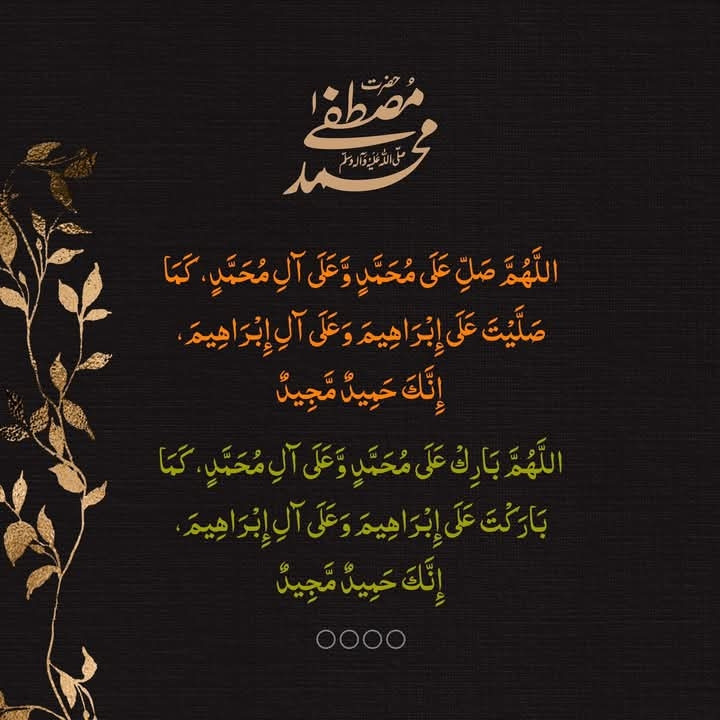 حضرت
محمد مصطفیٰ
صلی اللہ علیہ وآلہ وسلم
اللَّهُمَّ صَلِّ عَلَى مُحَمَّدٍ وَّعَلَى آلِ مُحَمَّدٍ، كَمَا
صَلَّيْتَ عَلَى إِبْرَاهِيمَ وَعَلَى آلِ إِبْرَاهِيمَ،
إِنَّكَ حَمِيدٌ مَّجِيدٌ
اللَّهُمَّ بَارِكْ عَلَى مُحَمَّدٍ وَّعَلَى آلِ مُحَمَّدٍ، كَمَا
بَارَكْتَ عَلَى إِبْرَاهِيمَ وَعَلَى آلِ إِبْرَاهِيمَ،
إِنَّكَ حَمِيدٌ مَّجِيدٌ